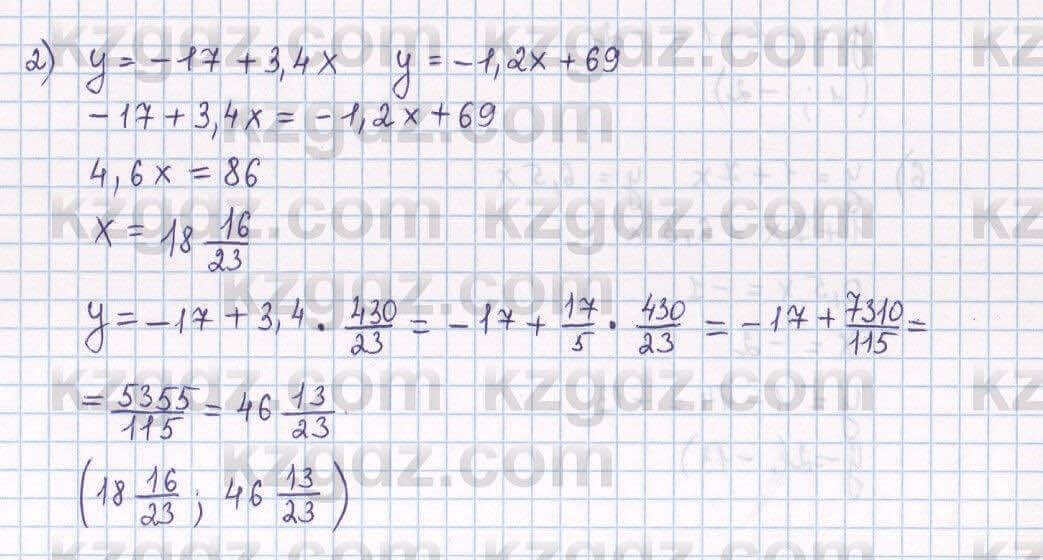 2) y = -17 + 3,4x   y = -1,2x + 69
-17 + 3,4x = -1,2x + 69
4,6x = 86
x = 18 16/23
y = -17 + 3,4 · 430/23 = -17 + 17/5 · 430/23 = -17 + 7310/115 =
= 5355/115 = 46 13/23
(18 16/23; 46 13/23)
kzgdz.com